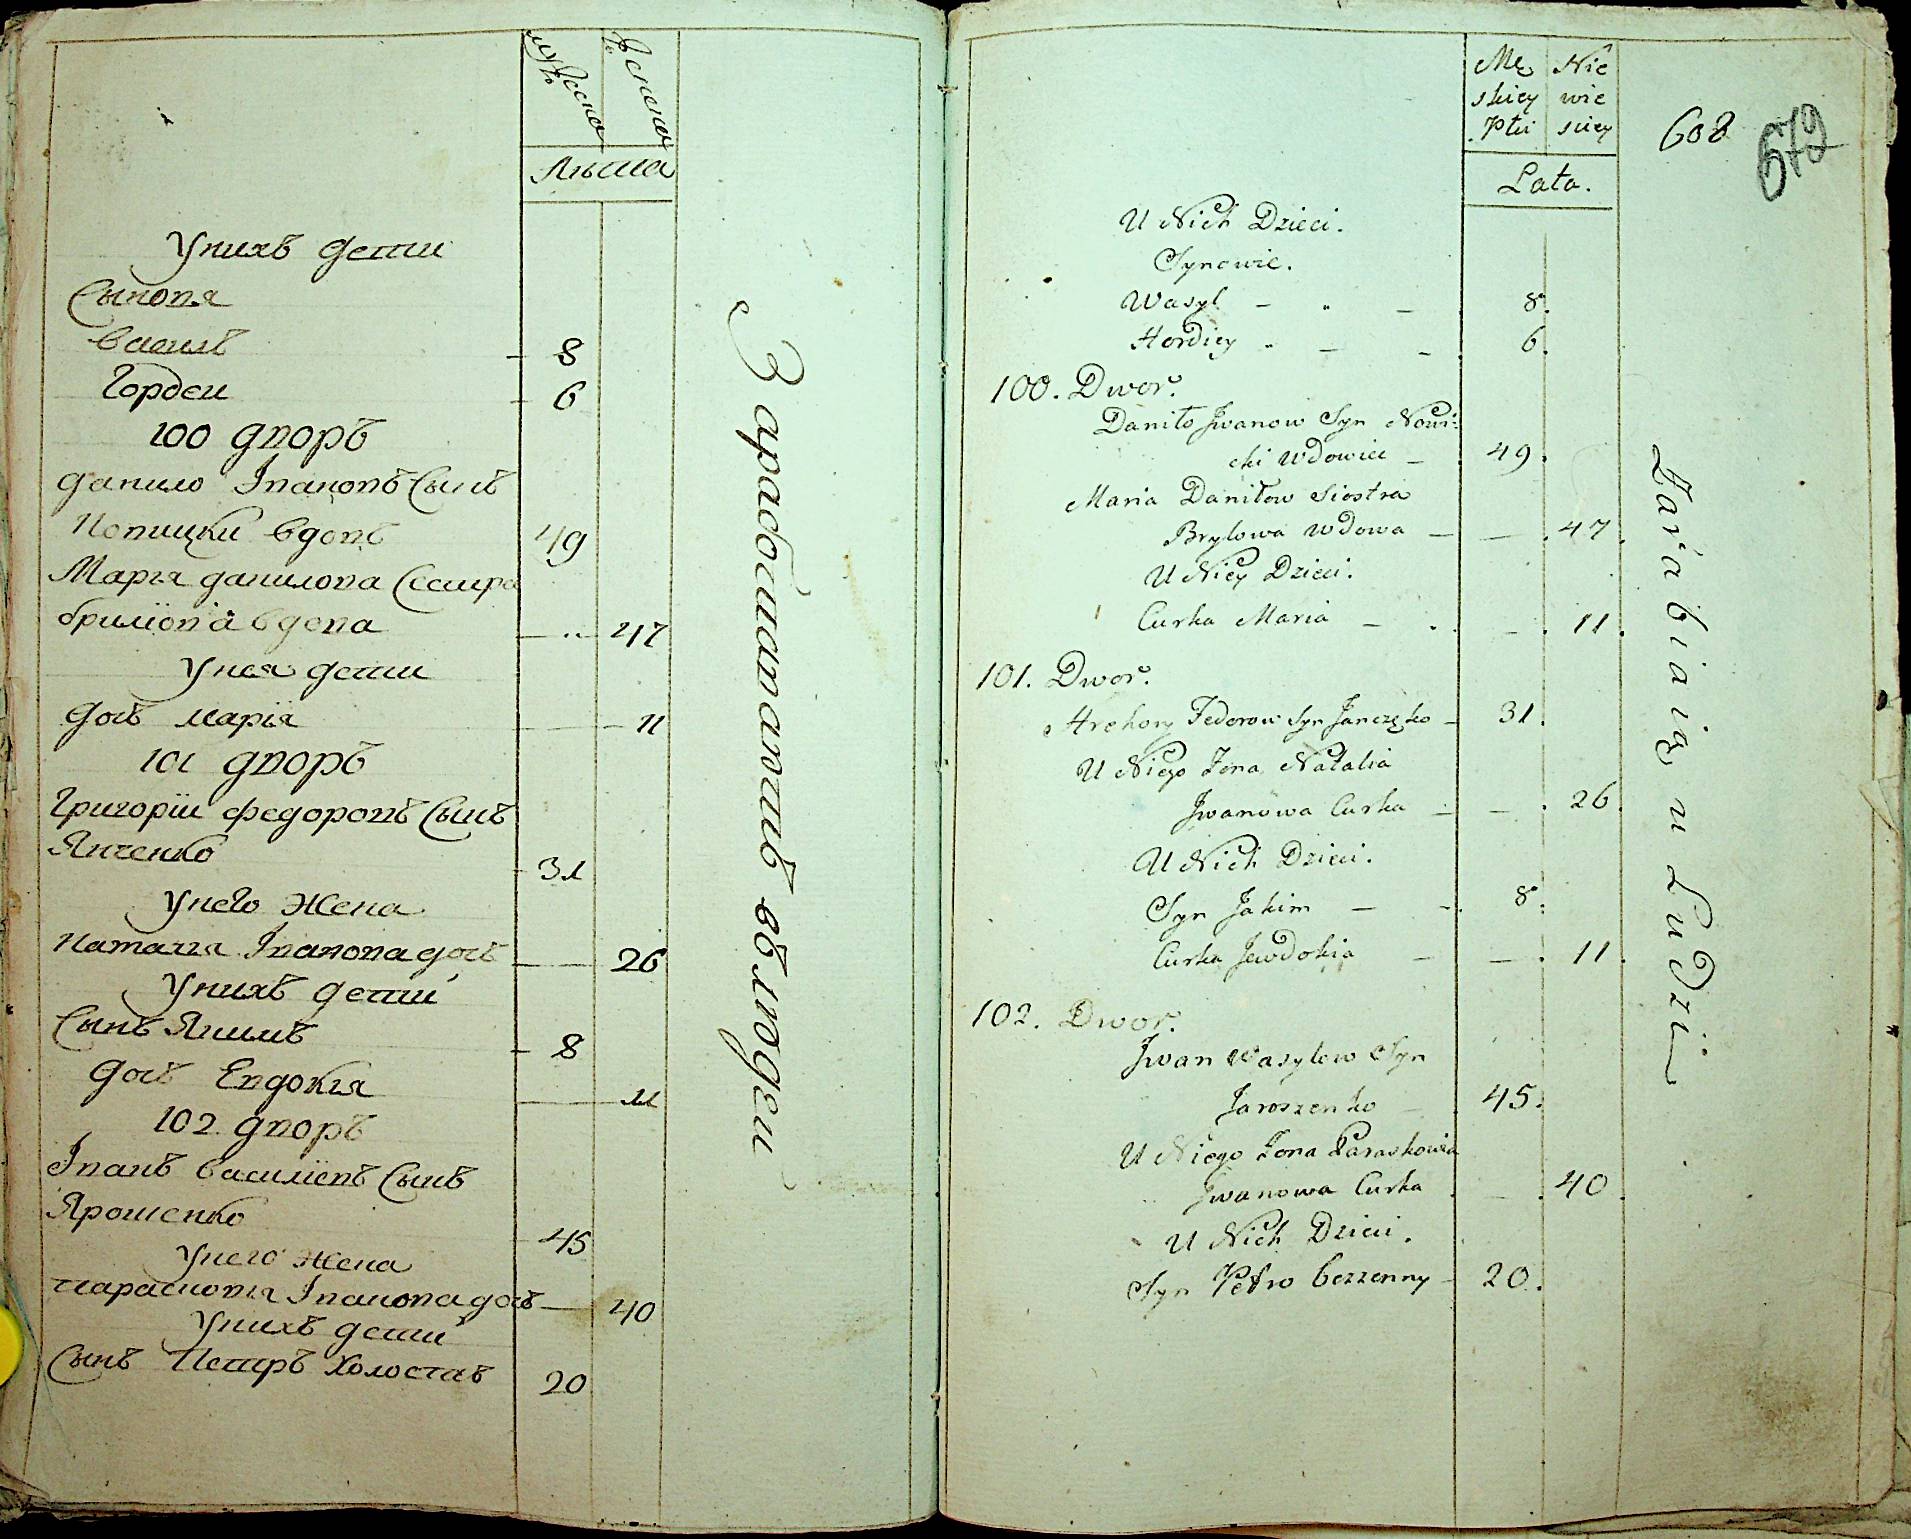 Лѣта
Унихъ дети
Сыновя
Василь
8
Гордеи
6
100 дворъ
Данило Iвановъ Сынъ
Новицки вдовъ
49
Марiя данилова Сестра
брилiова вдова
47
Унея дети
дочь марiя
11
101 дворъ
Григорiи федоровъ Сынъ
Янченко
31
Унего жена
Наталя Iванова дочь
26
Унихъ дети
Сынъ Якимъ
8
дочь Евдокiя
11
102 дворъ
Iванъ василiевъ Сынъ
Ярошенко
45
Унего жена
Парасковiя Iванова дочь
40
Унихъ дети
Сынъ Петръ холостъ
20
Заработитаютъ вълюдеи
Mę Nie
skiey wie
Płci sciey
Lata.
608
679
U Nich Dzieci.
Synowie.
Wasyl 8.
Hordiey 6.
100. Dwor.
Daniło Jwanow Syn Nowi:
cki wdowiec 49.
Maria Daniłow Siostra
Brylowa wdowa 47.
U Niey Dzieci.
Curka Maria 11.
101. Dwor.
Hrehory Fedorow Syn Janczęko 31.
U Niego Zona Natalia
Jwanowa Curka 26.
U Nich Dzieci.
Syn Jakim 8.
Curka Jewdokia 11.
102. Dwor.
Jwan Wasylow Syn
Jaroszenko 45.
U Niego Zona Paraskowia
Jwanowa Curka 40.
U Nich Dzieci.
Syn Petro bezzenny 20.
Zarabiaią u Ludzi